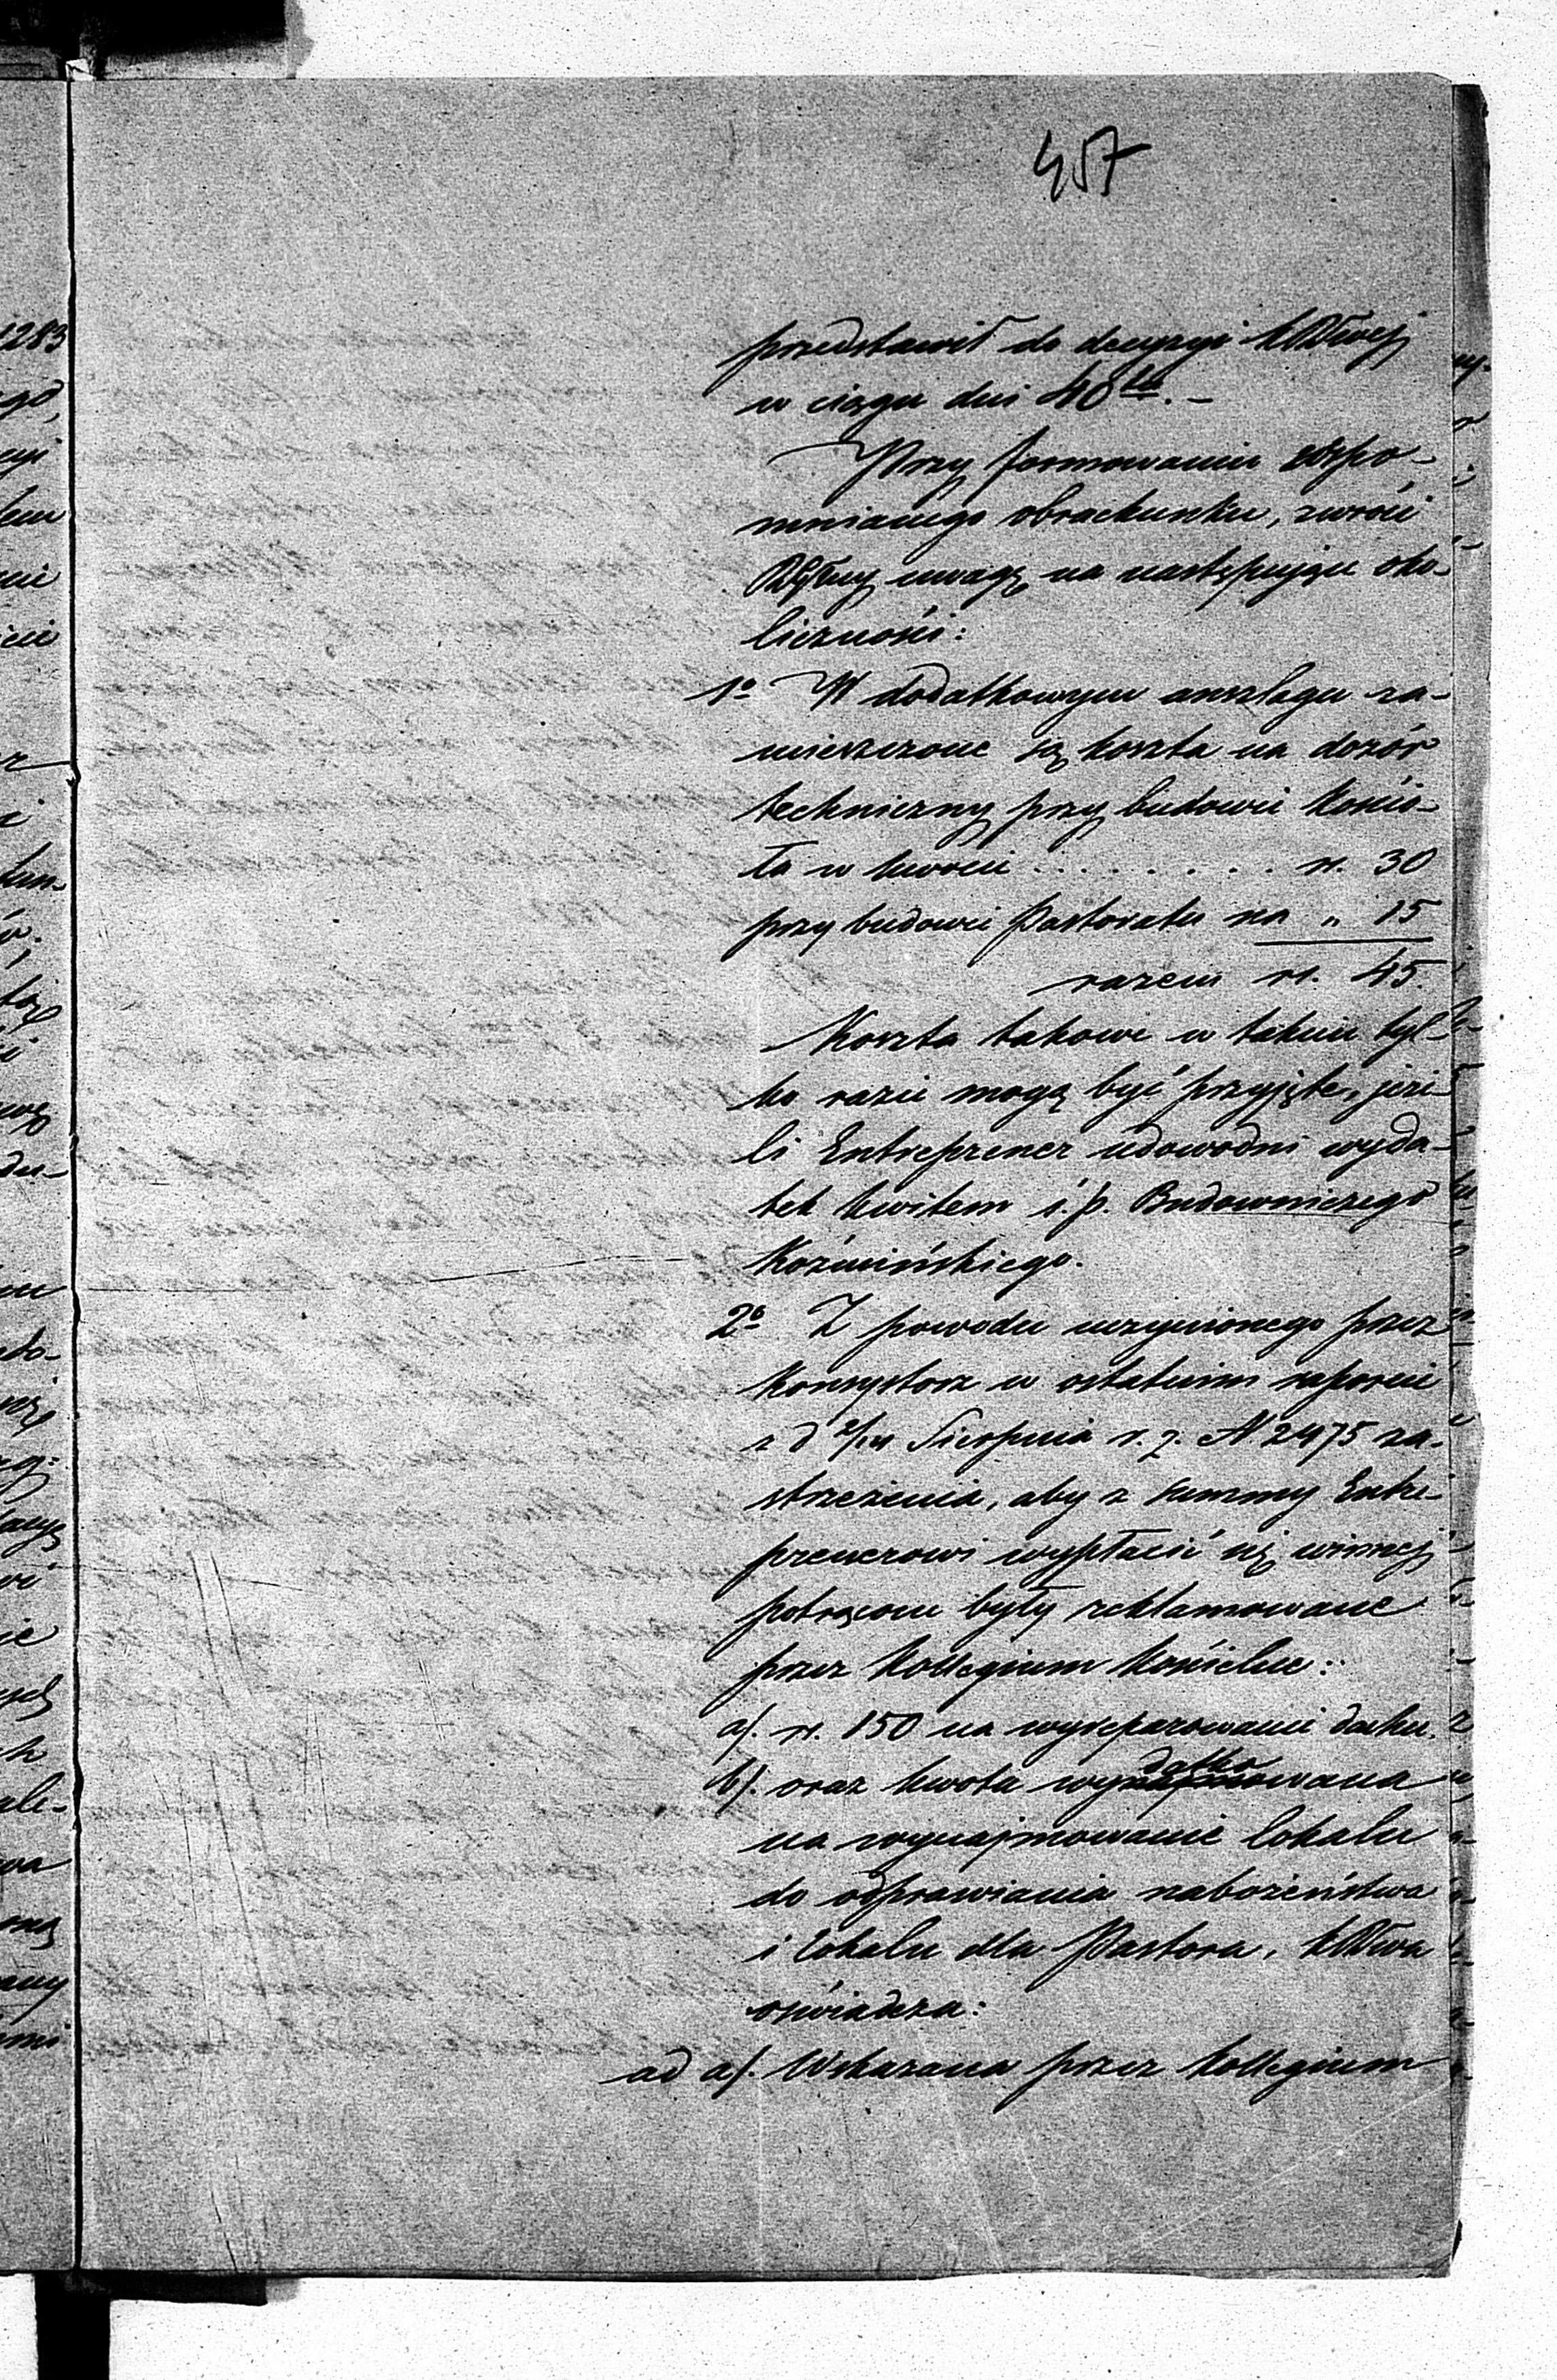 457
przedstawił do decyzyi KRządowej
w ciągu dni 40tu. –
Przy formowaniu wspo-
mnianego obrachunku, zwróci
Rząd Gubny uwagę na następujące oko-
liczności:
1o W dodatkowym anszlagu za-
mieszczone są koszta na dozór
techniczny przy budowie Kościo-
ła w kwocie . . . . . . . . . rs. 30
przy budowie Pastoratu na „ 15
razem rs. 45.
Koszta takowe w takim tyl-
ko razie mogą być przyjęte, jeże-
li Entreprener udowodni wyda-
tek kwitem ś. p. Budowniczego
Koźmińskiego.
2o Z powodu uczynionego przez
Konsystorz w ostatnim raporcie
z d Sierpnia r. z. N 2475 za-
strzeżenia, aby z summy Entre-
prenerowi wypłacić się winnej
potrącone były reklamowane
przez Kollegium Kościelne:
a). rs. 150 na wyreparowanie dachu.
b). oraz kwota wydatkowana
na wynajmowanie lokalu
do odprawiania nabożeństwa
i lokalu dla Pastora, KRządowa
oświadcza:
ad a). Wskazana przez Kollegium